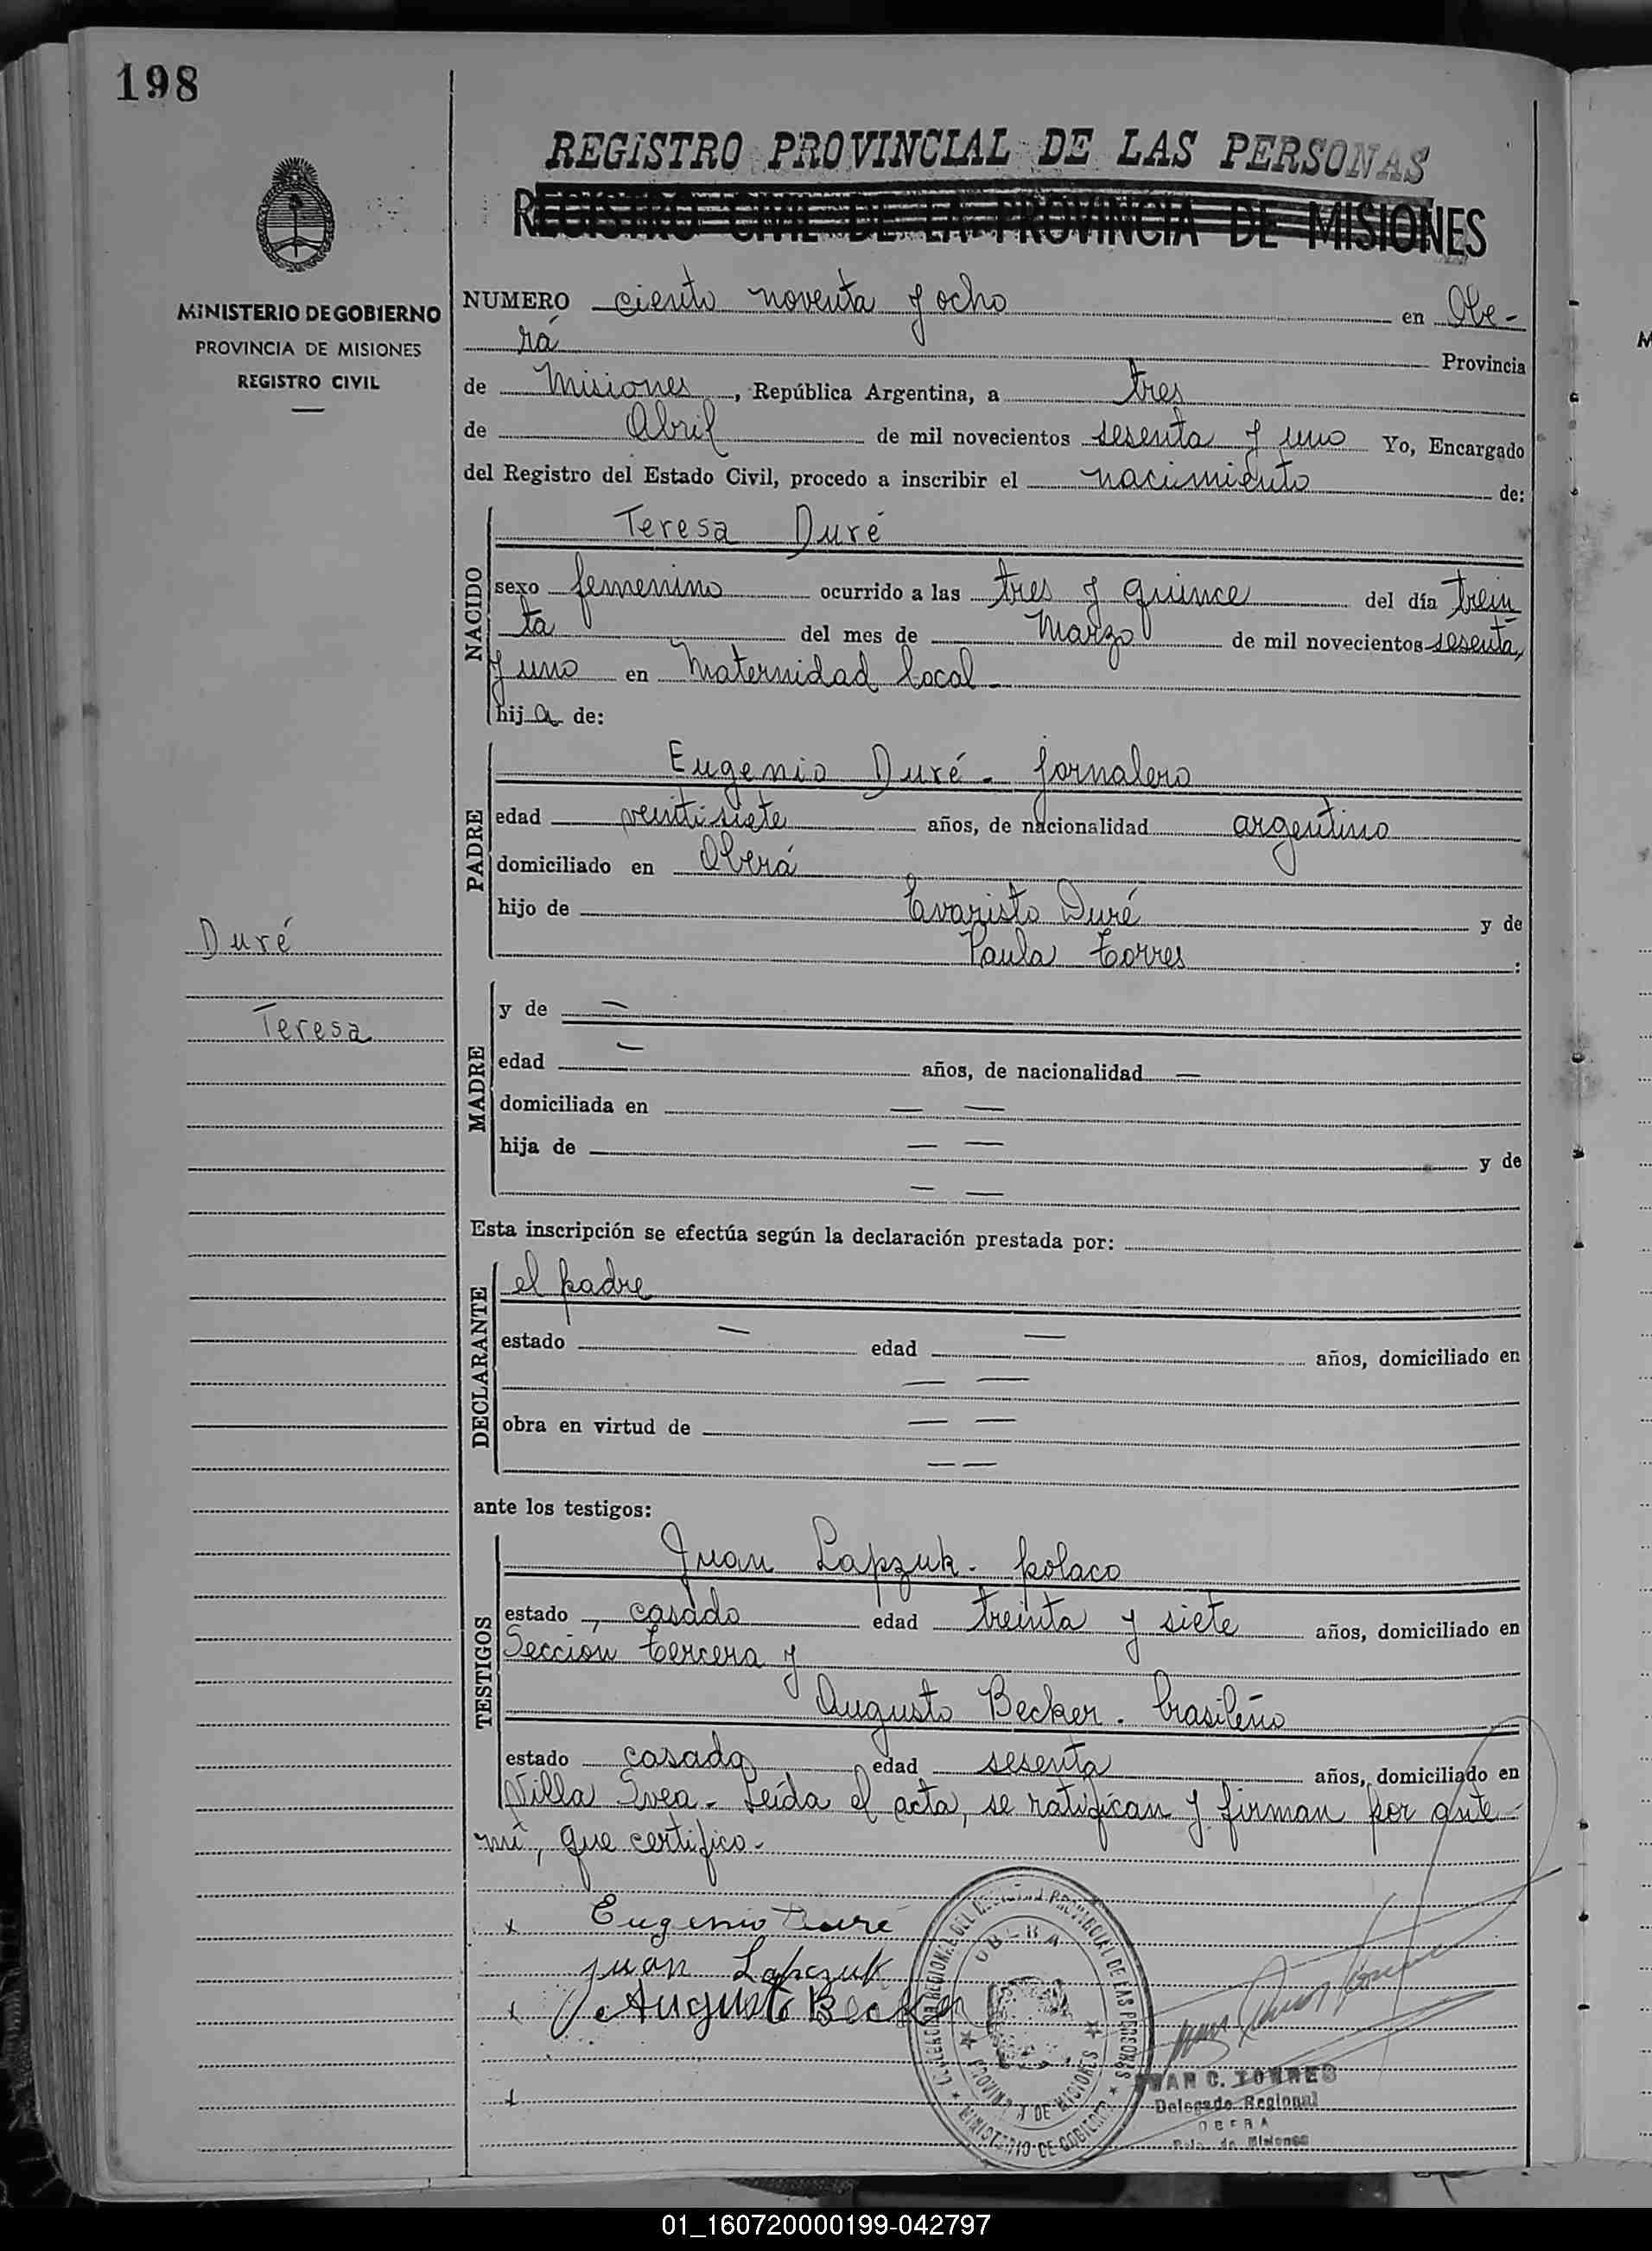 198
REGISTRO PROVINCIAL DE LAS PERSONAS
REGISTRO CIVIL DE LA PROVINCIA DE MISIONES
MINISTERIO DE GOBIERNO
PROVINCIA DE MISIONES
REGISTRO CIVIL
NUMERO ciento noventa y ocho en Obe-
rá Provincia
de Misiones, República Argentina, a tres
de Abril de mil novecientos sesenta y uno Yo, Encargado
del Registro del Estado Civil, procedo a inscribir el nacimiento de:
NACIDO
Teresa Duré
sexo femenino ocurrido a las tres y quince del día trein
ta del mes de Marzo de mil novecientos sesenta
y uno en Maternidad local-
hija de:
PADRE
Eugenio Duré - jornalero
edad veintisiete años, de nacionalidad argentino
domiciliado en Oberá
hijo de Evaristo Duré y de
Paula Torres :
Duré
Teresa
MADRE
y de —
edad — años, de nacionalidad —
domiciliada en — —
hija de — — y de
— —
Esta inscripción se efectúa según la declaración prestada por:
DECLARANTE
el padre
estado — edad — años, domiciliado en
— —
obra en virtud de — —
— —
ante los testigos:
TESTIGOS
Juan Lapzuk - polaco
estado, casado edad treinta y siete años, domiciliado en
Sección tercera y
Augusto Becker - brasileño
estado casado edad sesenta años, domiciliado en
Villa Svea - Leída el acta, se ratifican y firman por ante
mí, que certifico.-
x Eugenio Duré
Juan Lapczuk
x Augusto Becker
x
REGISTRO PROVINCIAL DE LAS PERSONAS
OBERA
PROVINCIA DE MISIONES
MINISTERIO DE GOBIERNO
JUAN C. TORRES
Delegado Regional
OBERA
Pcia. de Misiones
01_160720000199-042797